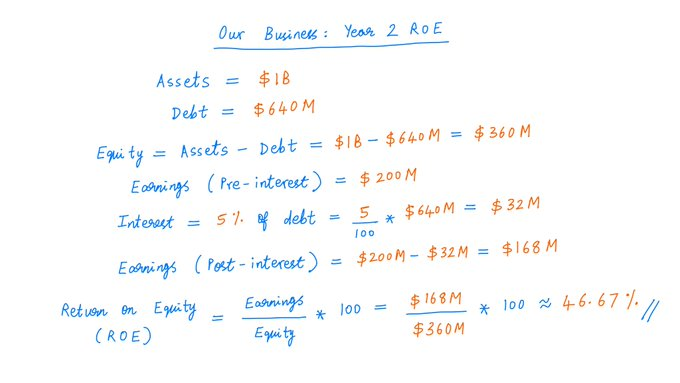 Our Business: Year 2 ROE
Assets = $1B
Debt = $640M
Equity = Assets - Debt = $1B - $640M = $360M
Earnings (Pre-interest) = $200M
Interest = 5% of debt = 5/100 * $640M = $32M
Earnings (Post-interest) = $200M - $32M = $168M
Return on Equity (ROE) = Earnings/Equity * 100 = $168M/$360M * 100 ≈ 46.67% //